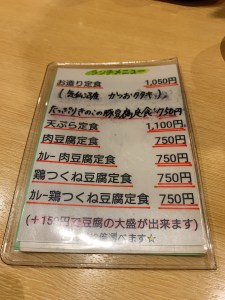 ランチメニュー
お造り定食 1,050円
かつおタタキ)
きのこの豚豆腐定食 750円
天ぷら定食 1,100円
肉豆腐定食 750円
カレー肉豆腐定食 750円
鶏つくね豆腐定食 750円
カレー鶏つくね豆腐定食 750円
(+150円で豆腐の大盛が出来ます)
選べます☆